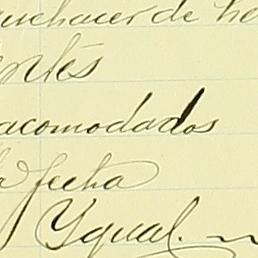 quehacer de he
entés
acomodados
la fecha
Ygual.